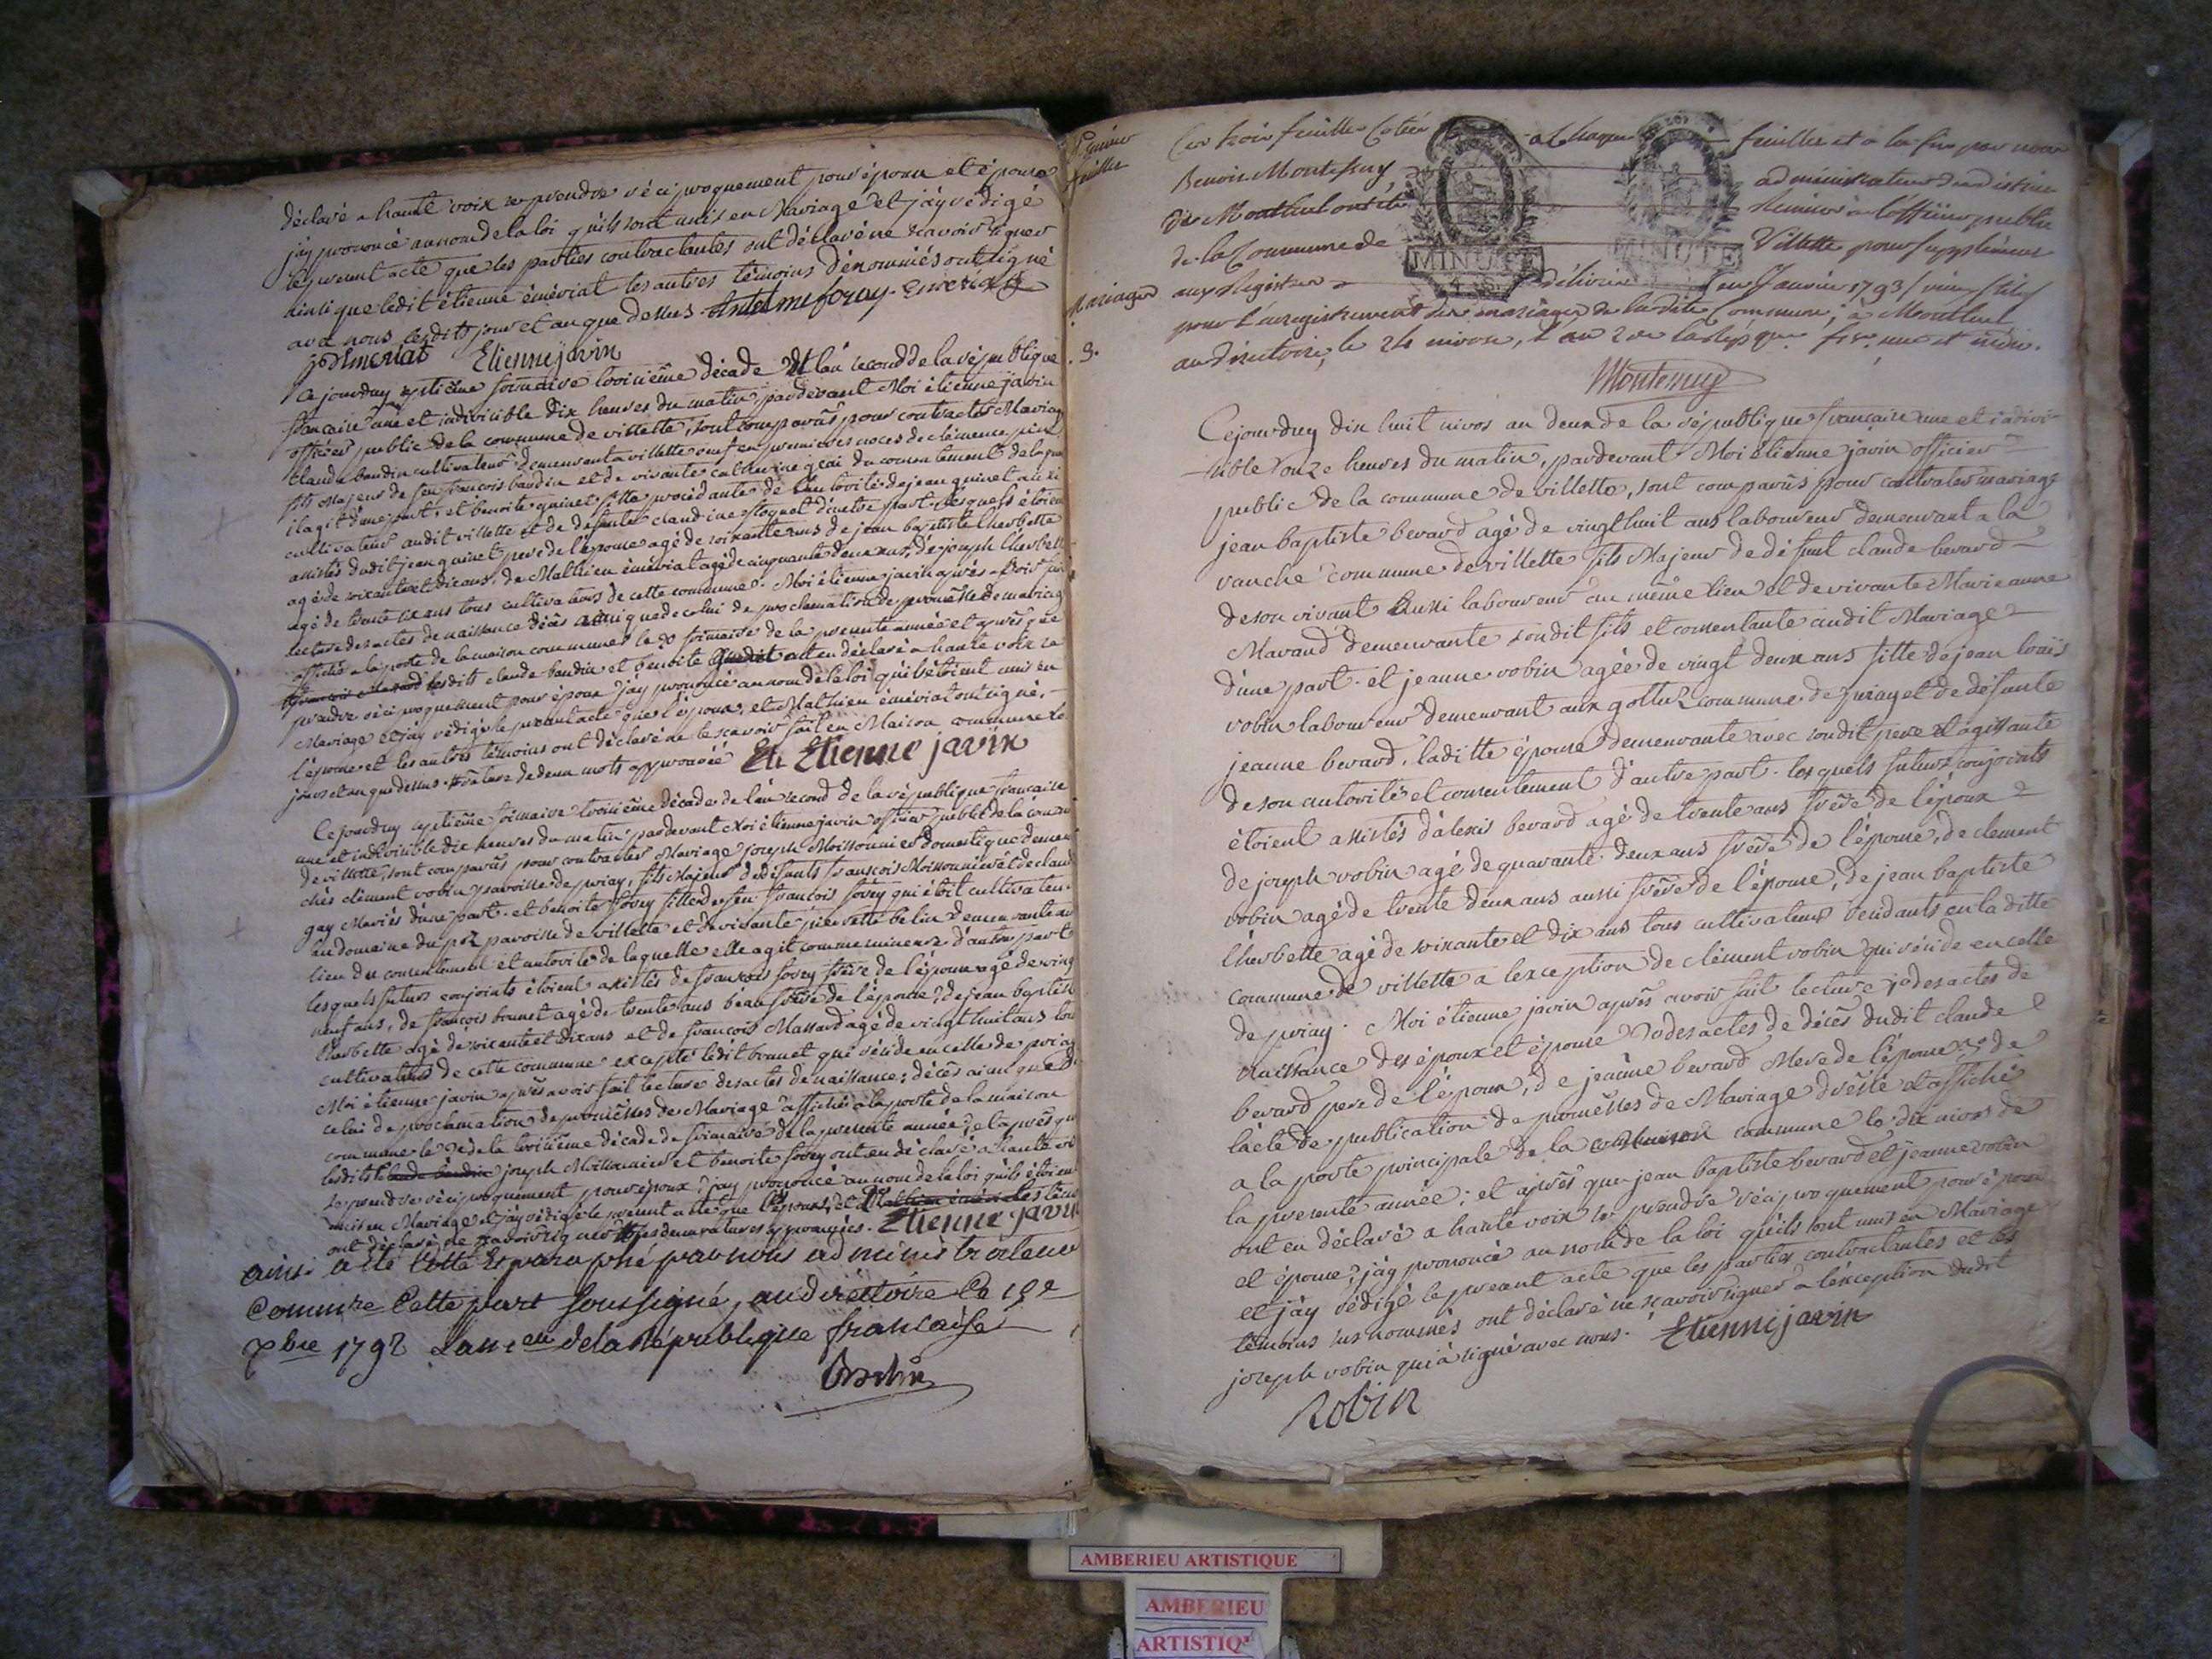 déclaré a haute voix se prendre réciproquement pour époux et épouse
j'ay prononcé au nom de la loi qu'ils sont unis en Mariage et j'ay rédigé
le present acte que les parties contractantes ont déclaré ne scavoir signer
ainsi que ledit étienne émériat les autres témoins dénommés ont signé
avec nous lesdits jour et an que dessus. Antelme foray
Etienne javin
Ce jourd'uy septième frimaire troisième décade de l'an second de la république
francaise une et indivicible dix heures du matin, pardevant Moi étienne javin
officier public de la commune de villette, sont comparûs pour contracter Mariage
claude baudin cultivateur demeurant a villette veuf en premieres noces de clémence
fils Majeur de feu francois baudin et de vivante catherine du consentement de la
il agit d'une part. et benoite quinet fille procédante de l'autorité de jean quinet
cultivateur audit villette et de défunte claudine d'autre part. lesquels étoient
assistés dudit jean quinet pere de l'épouse agé de soixante ans de jean baptiste lherbette
agé de soixante et dix ans, de Mathieu émériat agé de cinquante deux ans, de joseph lherbette
agé de trente ans tous cultivateurs de cette commune. Moi étienne javin après avoir fait
lecture des actes de naissance décès ainsi que de celui de proclamation de promesses de mariage
affiché a la porte de la maison commune le frimaire de la presente année et après que
lesdits claude baudin et benoite quinet ont eu déclaré a haute voix se
prendre réciproquement pour époux j'ay prononcé au nom de la loi qu'ils étoient unis en
Mariage et j'ay rédigé le present acte que l'époux, et Mathieu émériat ont signé,
l'épouse et les autres témoins ont déclaré ne le scavoir fait en Maison commune les
jour et an que dessus. rature de deux mots approuvée Etienne javin
Ce jourd'uy septième frimaire troisième décade de l'an second de la république francaise
une et indivisible dix heures du matin pardevant Moi étienne javin officier public de la commune
de villette, sont comparûs pour contracter Mariage joseph Moissonnier domestique demeurant
chés clément robin paroisse de priay, fils Majeur de défunts francois Moissonnier et de claudine
gay Mariés d'une part. et benoite forey fille de feu francois forey qui étoit cultivateur
au domaine du paroisse de villette et de vivante pierrette belin demeurante au
lieu du consentement et autorité de laquelle elle agit comme mineure d'autre part
lesquels futurs conjoints étoient assistés de francois forey frère de l'épouse agé de vingt
neuf ans, de francois brunet agé de trente ans beau frère de l'épouse, de jean baptiste
lherbette agé de soixante et dix ans et de francois Massard agé de vingt huit ans tous
cultivateurs de cette commune excepté ledit brunet qui réside en celle de priay
Moi étienne javin après avoir fait lecture des actes de naissance, décès ainsi que de
celui de proclamation de promesses de Mariage affiché à la porte de la maison
commune le de la troisième décade de frimaire de la presente année, et après que
lesdits joseph Moissonnier et benoite forey ont eu déclaré a haute voix
se prendre réciproquement pour époux, j'ay prononcé au nom de la loi qu'ils étoient
unis en Mariage et j'ay rédigé le present acte que les époux, et les témoins
ont déclaré ne scavoir signer les deux ratures approuvées. Etienne javin
ainsi a été Cotté & paraphé par nous administrateur
Commre Cette part soussigné, au directoire Ce 19e
xbre 1792 Lan 1er de la République française
Premier
feuillet
Mariages
9.
Ces trois feuilles Cotées a Chaque feuille et a la fin par nous
Benoit Montefruy administrateur du district
de Montluel ont été remises à l'officier public
de la Commune de Villette pour supplément
MINUTE
MINUTE
aux Registres délivrés en Janvier 1793 / vieux stile /
pour l'enregistrement des mariages de ladite Commune, à Montluel
au directoire, le 24 nivose, l'an 2 de la Répque frse une et indiv.
Ce jourd'uy dix huit nivos an deux de la république francaise une et indivi-
sible onze heures du matin, pardevant Moi étienne javin officier
public de la commune de villette, sont comparûs pour contracter mariage
jean baptiste berard agé de vingt huit ans laboureur demeurant a la
ranche commune de villette fils Majeur de défunt claude berard
de son vivant aussi laboureur au même lieu et de vivante Marie anne
Marand demeurante sondit fils et consentante audit Mariage
d'une part. et jeanne robin agée de vingt deux ans fille de jean louis
robin laboureur demeurant aux gottes commune de priay et de défunte
jeanne berard, laditte épouse demeurante avec sondit pere et agissante
de son autorité et consentement d'autre part. lesquels futurs conjoints
étoient assistés d'alexis berard agé de trente ans frère de l'époux
de joseph robin agé de quarante deux ans frère de l'épouse, de clement
robin agé de trente deux ans aussi frère de l'épouse, de jean baptiste
lherbette agé de soixante et dix ans tous cultivateurs résidants en laditte
commune de villette a lexception de clément robin qui réside en celle
de priay. Moi étienne javin après avoir fait lecture 1o des actes de
Naissance des époux et épouse 2o des actes de décès dudit claude
berard pere de l'époux, de jeanne berard Mere de l'épouse 3o de
l'acte de publication de promesses de Mariage dressé et affiché
a la porte principale de la maison commune le dix nivos de
la presente année ; et après que jean baptiste berard et jeanne robin
ont eu déclaré a haute voix se prendre réciproquement pour époux
et épouse, j'ay prononcé au nom de la loi qu'ils sont unis en Mariage
et j'ay rédigé le present acte que les parties contractantes et les
témoins sus nommés ont déclaré ne scavoir signer a l'exception dudit
joseph robin qui a signé avec nous. Etienne javin
Robin
AMBERIEU ARTISTIQUE
AMBERIEU
ARTISTIQ